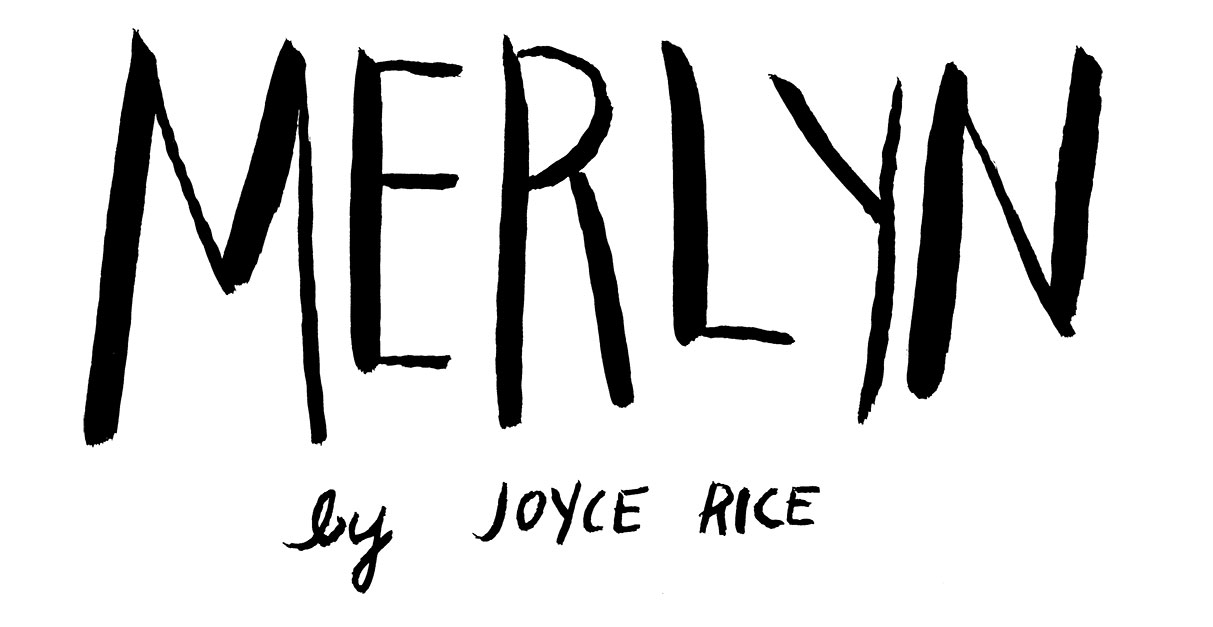 MERLYN
by JOYCE RICE